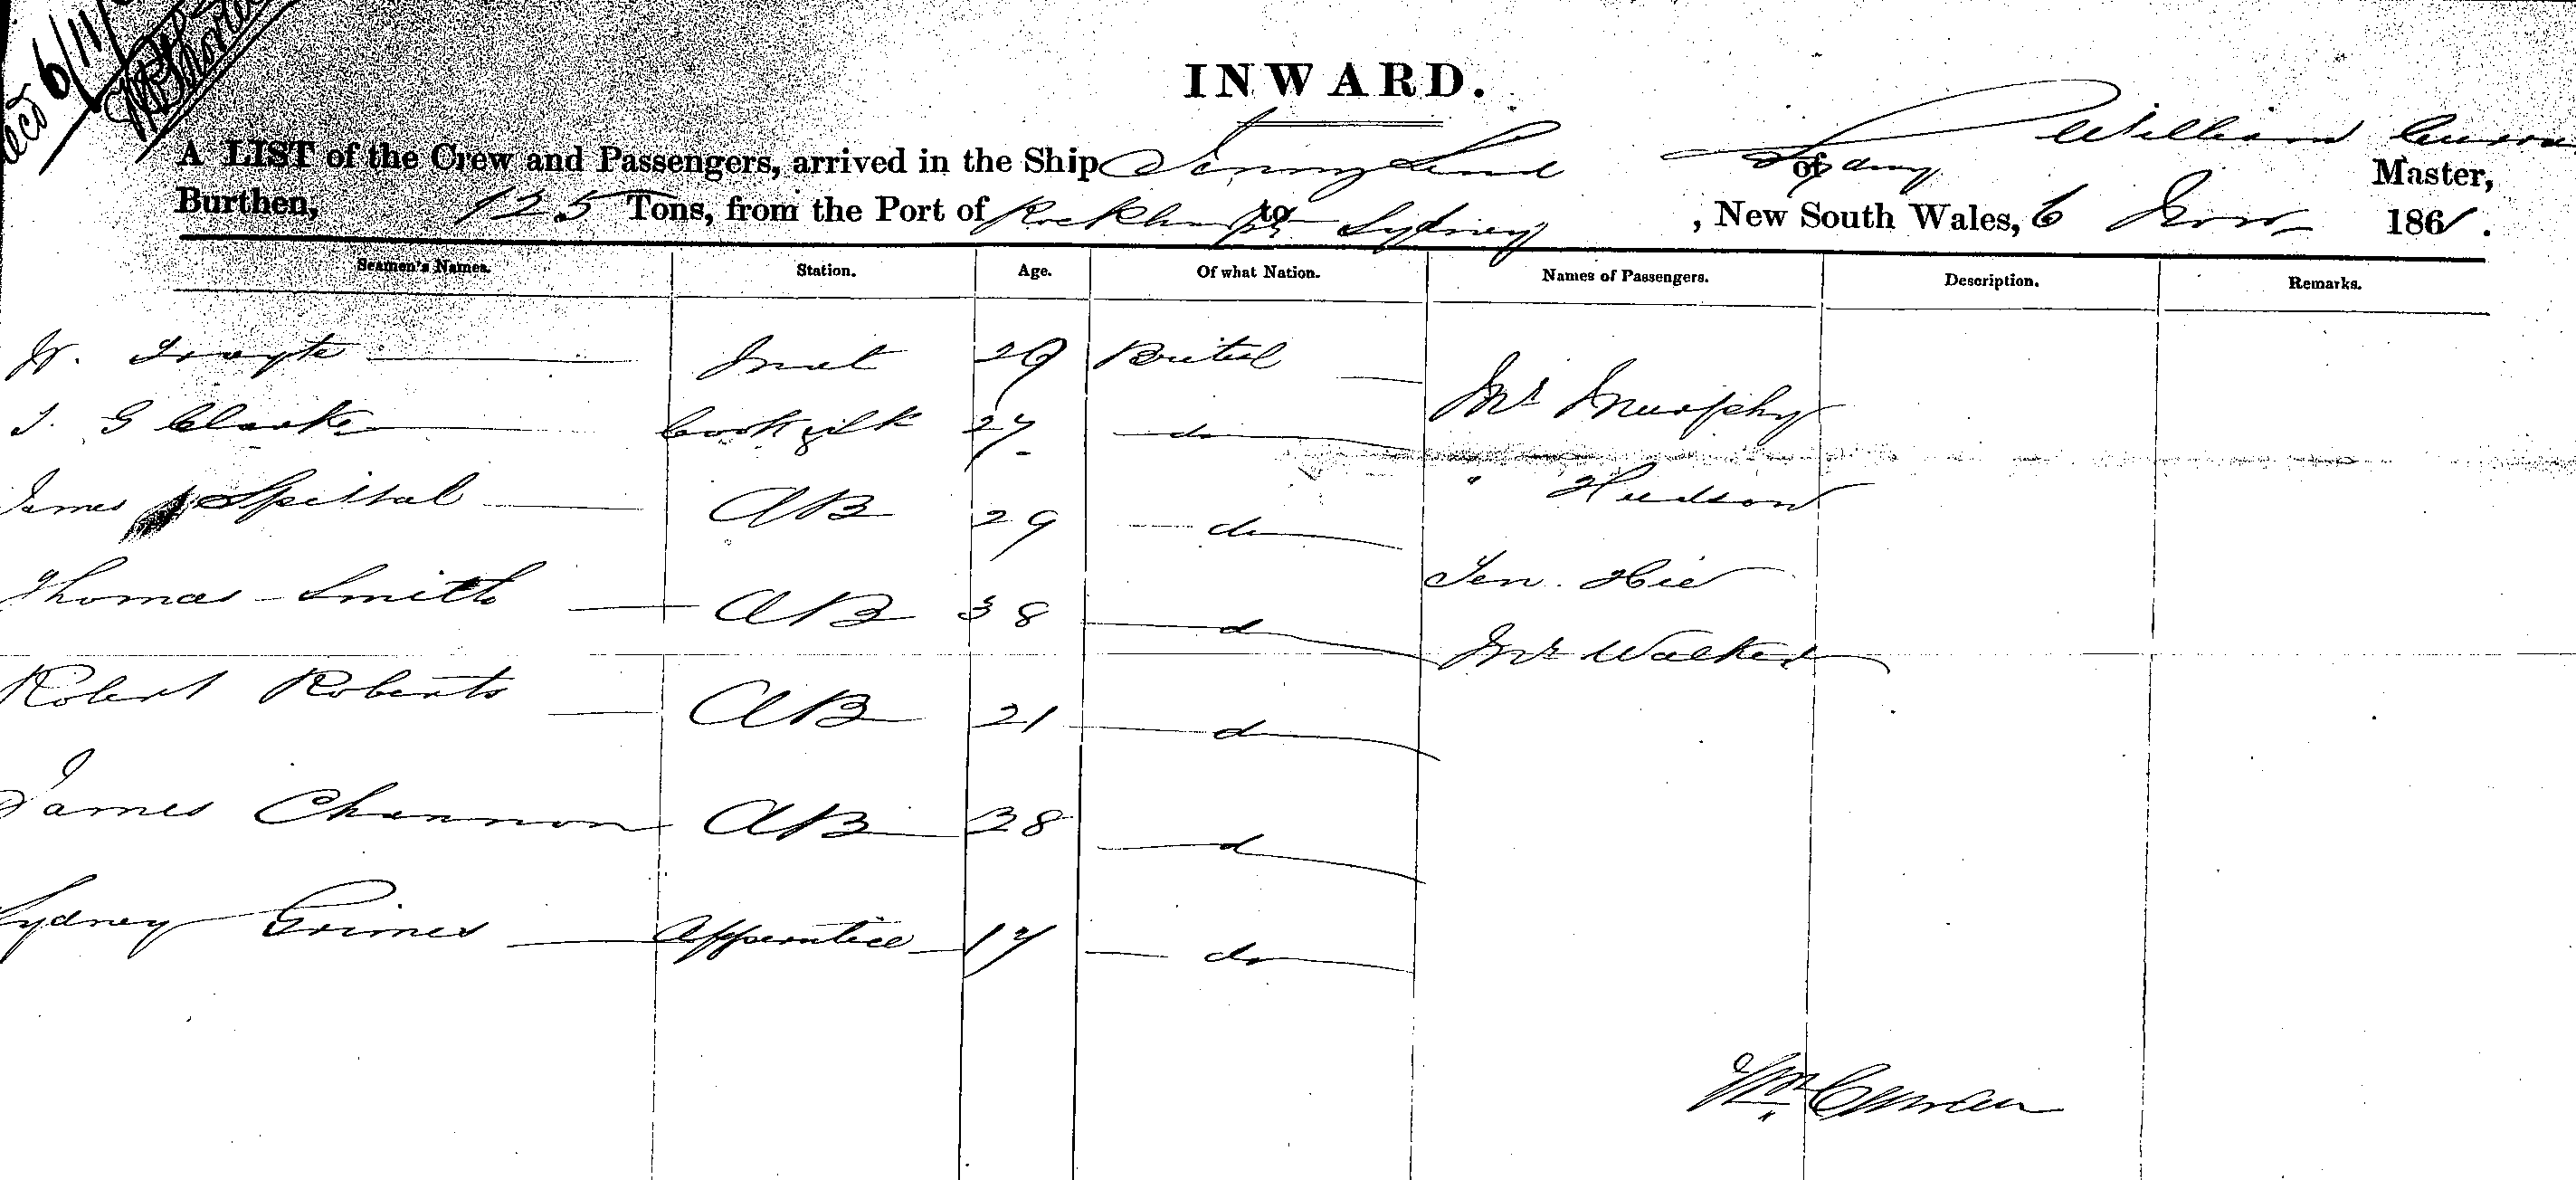 6/11/
INWARD.
A LIST of the Crew and Passengers, arrived in the Ship Jenny Lind of Sydney William Curran Master,
Burthen, 125 Tons, from the Port of Rockhampt to Sydney , New South Wales, 6 Nov 1861.
Seamen's Names. Station. Age. Of what Nation. Names of Passengers. Description. Remarks.
W. Mat 29 British
Mr Murphy
J. G Clarke Cook & Stk 27 do
James Spittal AB 29 do
" Hudson
Thomas Smith AB 38 d
Mr Walker
Robert Roberts AB 21 d
James Channon AB 38 d
Sydney Grimes Apprentice 17 do
Wm Curran